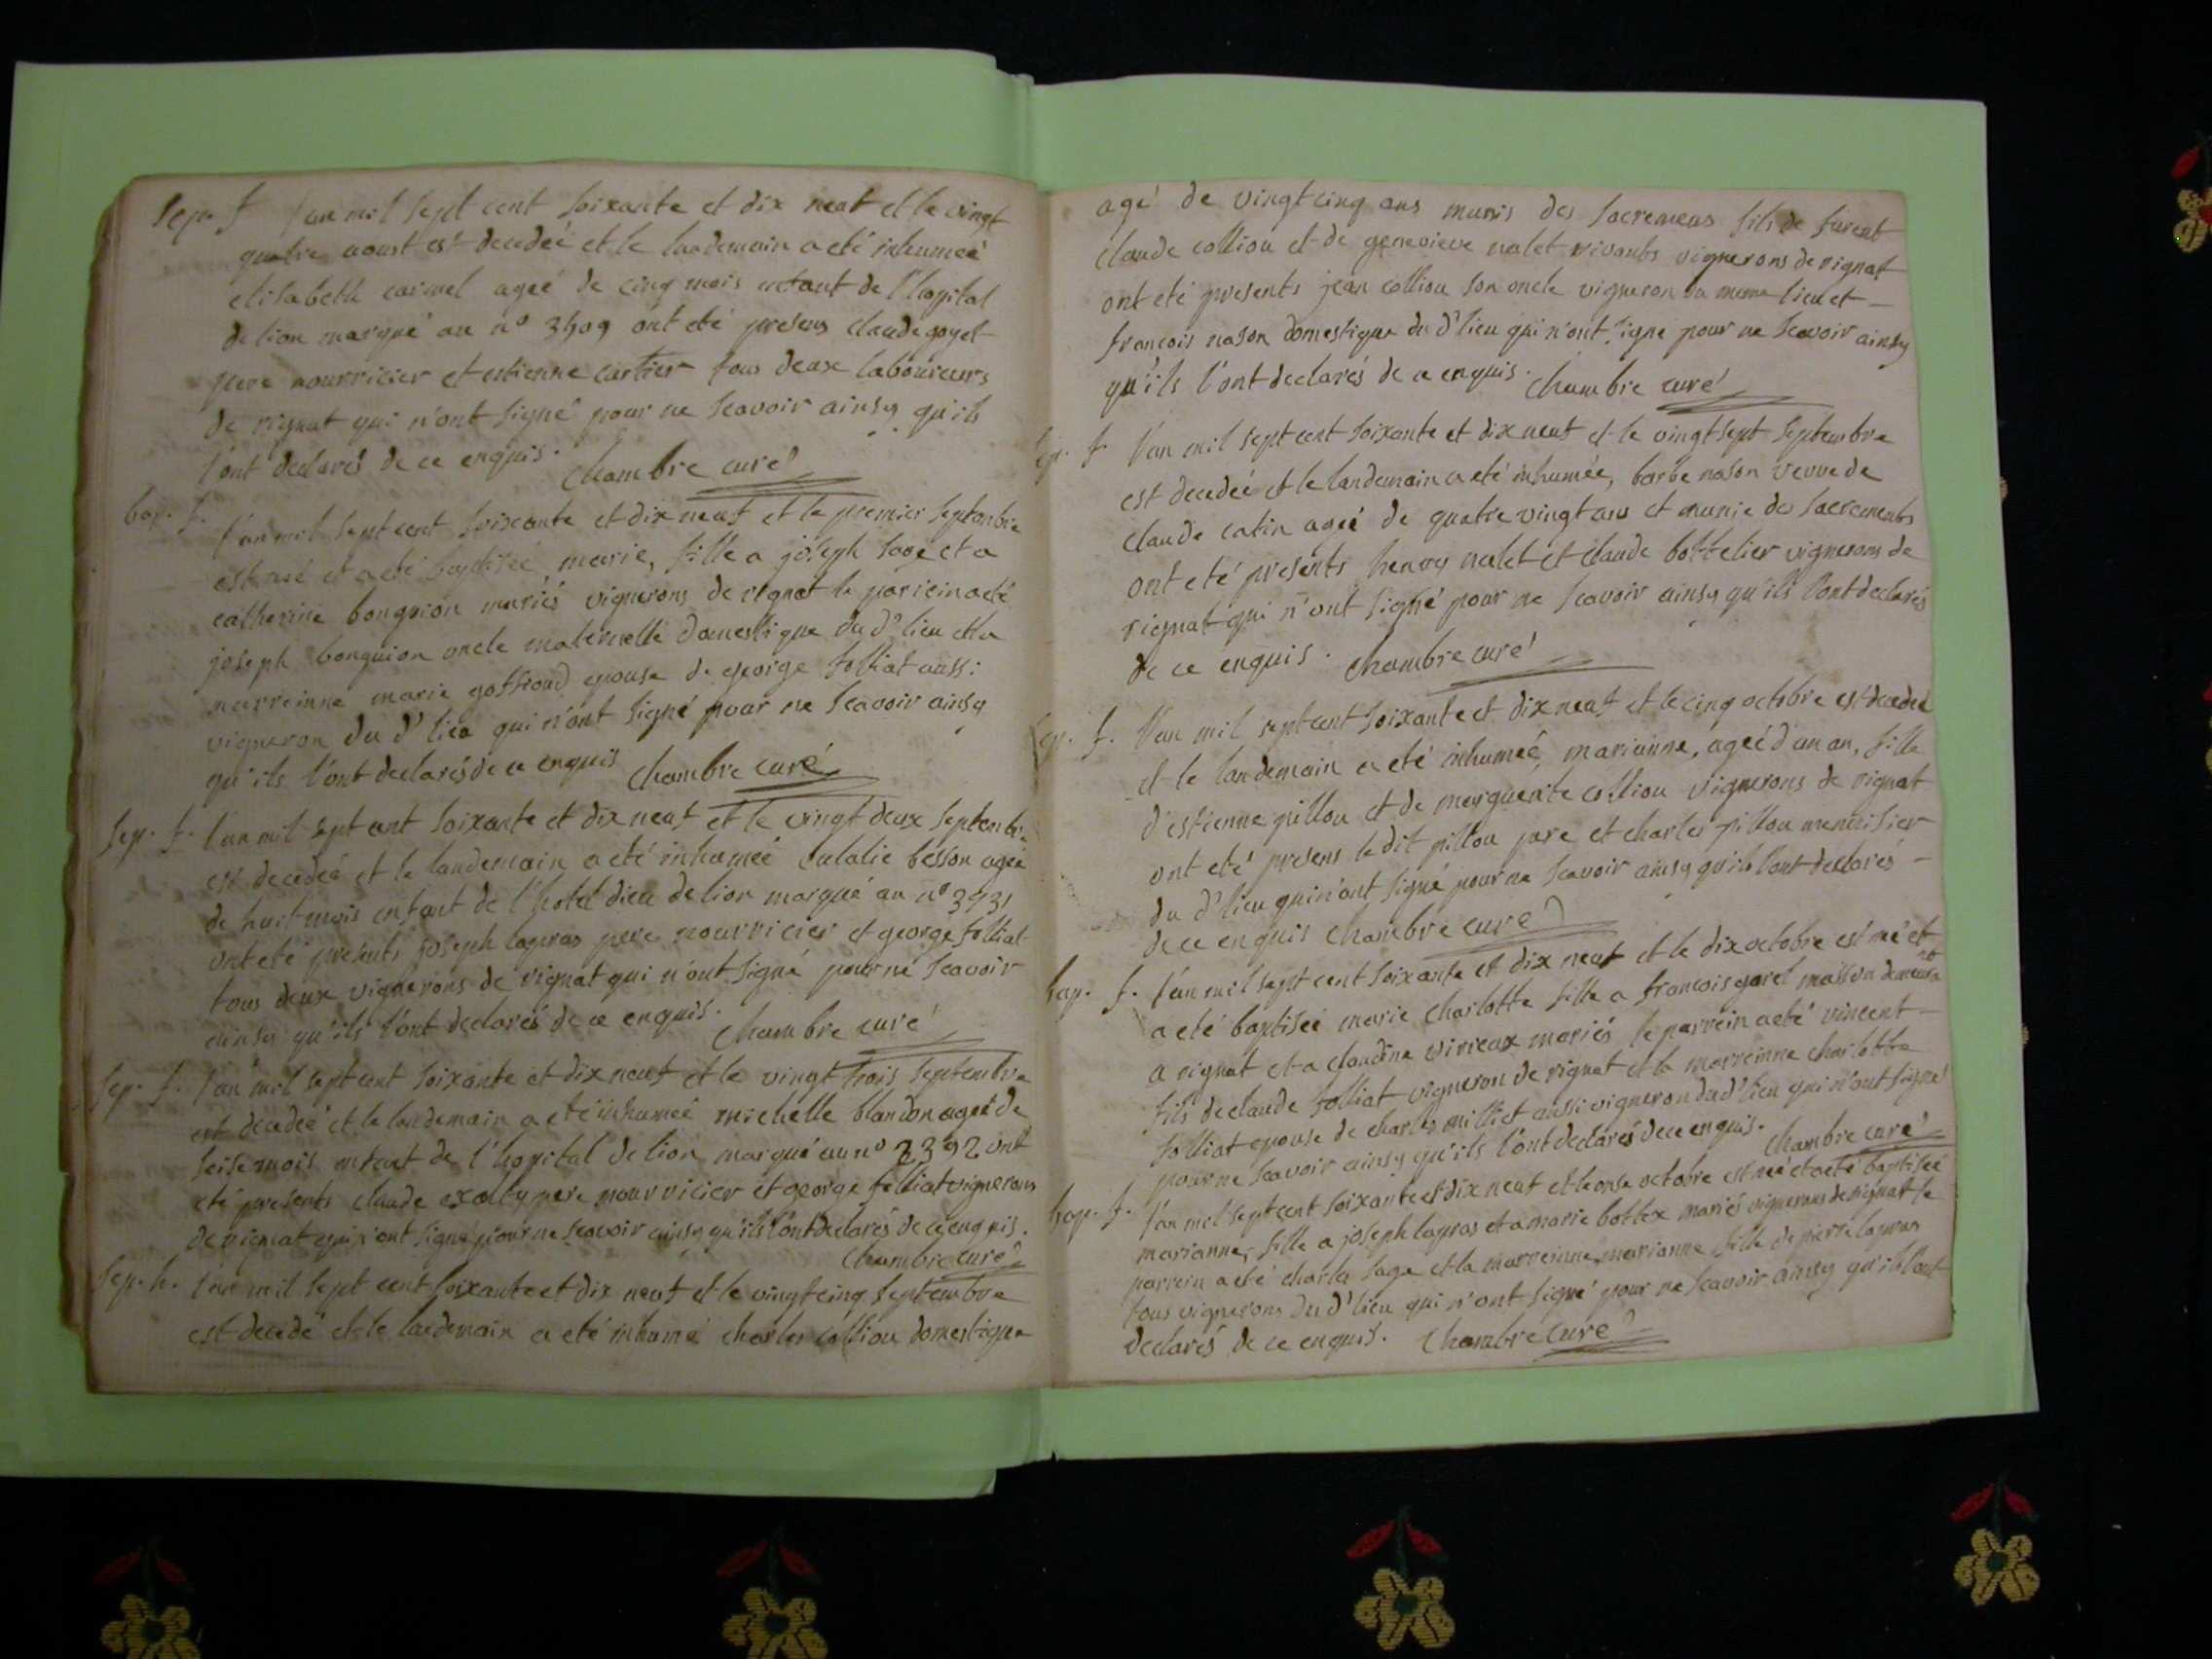 Sep. f l'an mil sept cent soixante et dix neuf et le vingt
quatre aoust est decedeé et le landemain a eté inhumeé
elisabeth carmel ageé de cinq mois enfant de l'hopital
de lion marqué au n° 3409 ont eté presens claude goyet
pere nourricier et estienne cartier tous deux laboureurs
de rignat qui n'ont signé pour ne scavoir ainsy qu'ils
l'ont declarés de ce enquis. Chambre curé
bap. f. l'an mil sept cent soixante et dix neuf et le premier septembre
est neé et a eté baptiseé marie, fille a joseph sage et a
catherine bonguion mariés vignerons de rignat le parrein a eté
joseph bonguion oncle maternelle domestique du d' lieu et la
marreinne marie goffiond epouse de george folliat aussi
vigneron du d' lieu qui n'ont signé pour ne scavoir ainsy
qu'ils l'ont declarés de ce enquis Chambre curé
Sep. f. l'an mil sept cent soixante et dix neuf et le vingt deux septembre
est decedeé et le landemain a eté inhumeé eulalie besson ageé
de huit mois enfant de l'hotel dieu de lion marqué au n° 3931
ont eté presents joseph lapras pere nourricier et george folliat
tous deux vignerons de rignat qui n'ont signé pour ne scavoir
ainsy qu'ils l'ont declarés de ce enquis. Chambre curé
Sep. f. l'an mil sept cent soixante et dix neuf et le vingt trois septembre
est decedeé et le landemain a eté inhumeé michelle blandon ageé de
seise mois enfant de l'hopital de lion marqué au n° 2392 ont
eté presents claude pere nourricier et george folliat vignerons
de rignat qui n'ont signé pour ne scavoir ainsy qu'ils l'ont declarés de ce enquis.
Chambre curé
Sep. h. l'an mil sept cent soixante et dix neuf et le vingt cinq septembre
est decedé et le landemain a eté inhumé charles colliou domestique
agé de vingt cinq ans munis des sacremens fils de furent
claude colliou et de genevieve nalet vivants vignerons de rignat
ont eté presents jean colliou son oncle vigneron du meme lieu et
francois nason domestique du d' lieu qui n'ont signé pour ne scavoir ainsy
qu'ils l'ont declarés de ce enquis. Chambre curé
Sep. f. l'an mil sept cent soixante et dix neuf et le vingt sept septembre
est decedeé et le landemain a eté inhumée, barbe nason veuve de
claude catin ageé de quatre vingt ans et munie des sacrements
ont eté presents henry nalet et claude bottelier vignerons de
rignat qui n'ont signé pour ne scavoir ainsy qu'ils l'ont declarés
de ce enquis. Chambre curé
Sep. f. l'an mil sept cent soixante et dix neuf et le cinq octobre est decedeé
et le landemain a eté inhumeé, marianne, ageé d'un an, fille
d'estienne pillou et de marguerite colliou vignerons de rignat
ont eté presens le dit pillou pere et charles pillou menuisier
du d' lieu qui n'ont signé pour ne scavoir ainsy qu'ils l'ont declarés
de ce enquis Chambre curé
bap. f. l'an mil sept cent soixante et dix neuf et le dix octobre est neé et
a eté baptiseé marie charlotte fille a francois garel masson demeurant
a rignat et a claudine virieux mariés le parrein a eté vincent
fils de claude folliat vigneron de rignat et la marreinne charlotte
folliat epouse de charles milliet aussi vigneron du d' lieu qui n'ont signé
pour ne scavoir ainsy qu'ils l'ont declarés de ce enquis. Chambre curé
bap. f. l'an mil sept cent soixante et dix neuf et le onse octobre est neé et a eté baptiseé
marianne, fille a joseph lapras et a marie bottex mariés vignerons de rignat le
parrein a eté charles sage et la marreinne, marianne fille de pierre lapras
tous vignerons du d' lieu qui n'ont signé pour ne scavoir ainsy qu'ils l'ont
declarés de ce enquis. Chambre curé